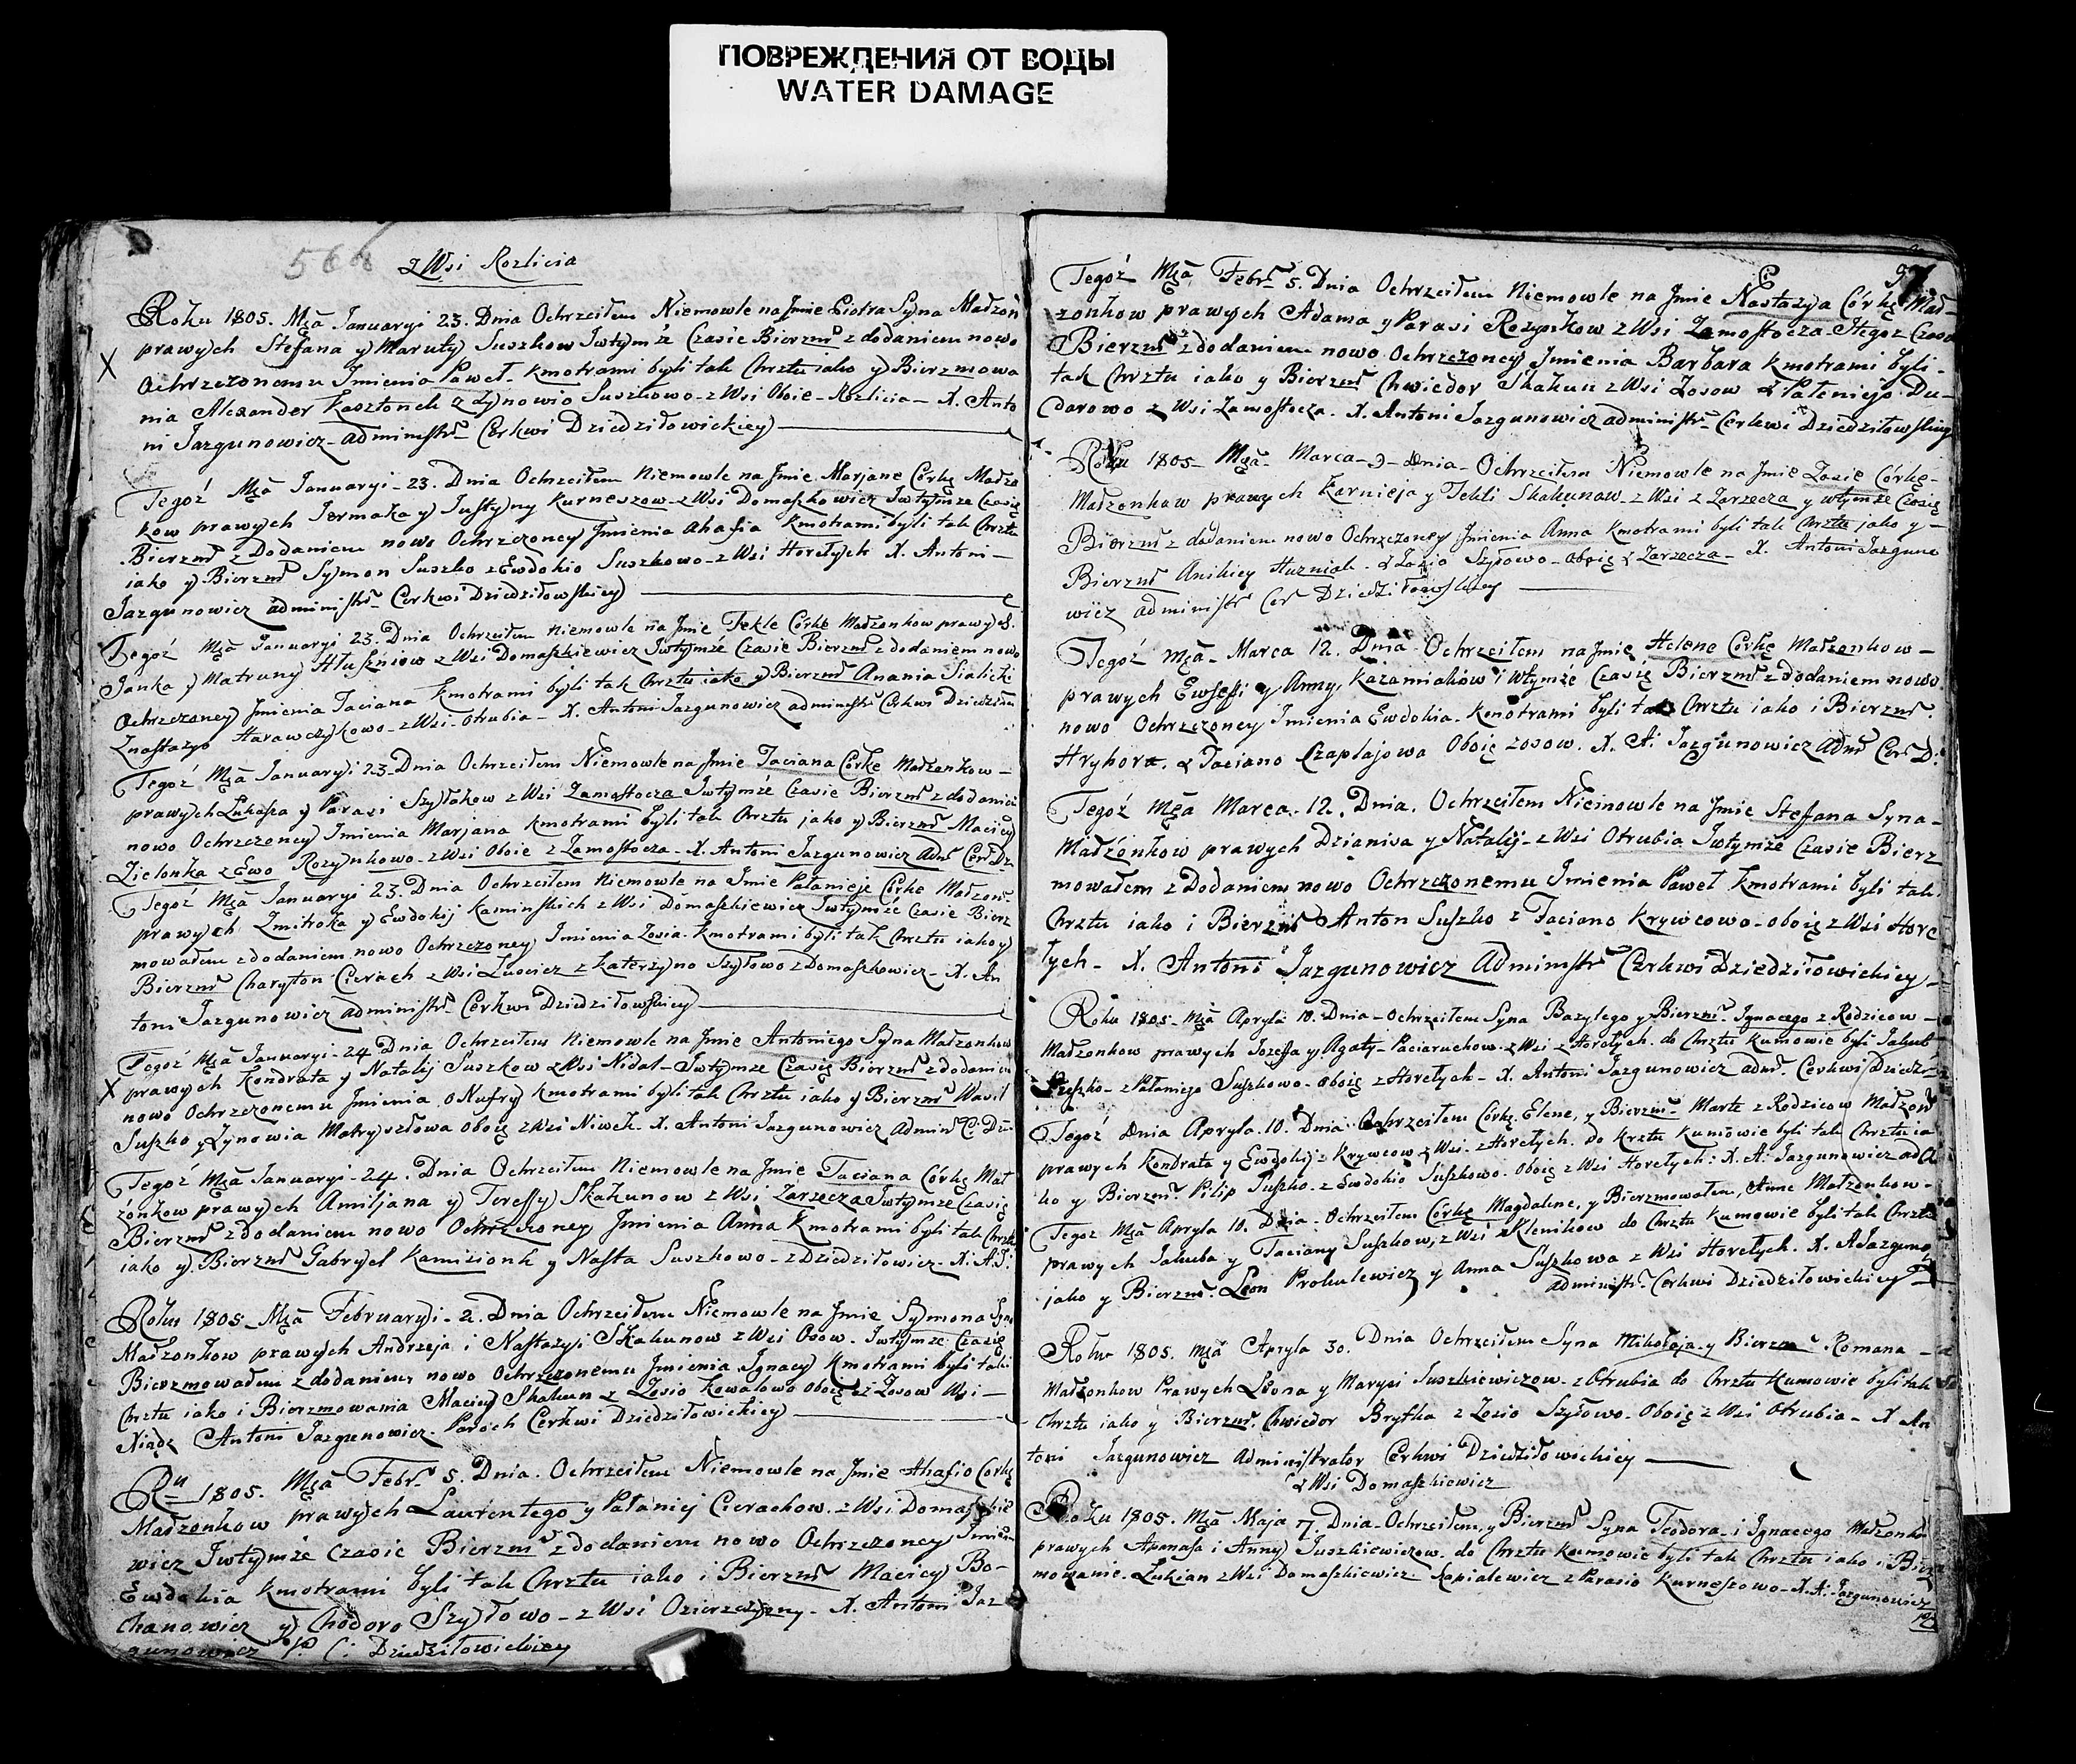 ПОВРЕЖДЕНИЯ ОТ ВОДЫ
WATER DAMAGE
566
z Wsi Rozlicia
Roku 1805. Mca Januaryi 23. Dnia Ochrzciłem Niemowle na Jmie Piotra Syna Małżon
prawych Stefana y Maruty Suszkow Iwtymże Czasie Bierzm z dodaniem nowo
Ochrzczonemu Jmienia Paweł. Kmotrami byli tak Chrztu iako y Bierzmowa
nia Alexander Kasztonek z Zynowio Suszkowo z Wsi Oboie Rozlicia X. Anto
ni Jazgunowicz administr Cerkwi Dziedziłowickiey
Tegoż Mca Januaryi 23. Dnia Ochrzciłem Niemowle na Jmie Marjane Córkę Małżą
kow prawych Jermaka y Justyny Kurneszow z Wsi Domaszkowicz Iwtymże Czasie
Bierzm z Dodaniem nowo Ochrzczoney Jmienia Ahafia Kmotrami byli tak Chrztu
iako y Bierzm Symon Suszko z Ewdokio Suszkowo z Wsi Horełych X. Antoni
Jazgunowicz administr Cerkwi Dziedziłowskiey
Tegoż Mca Januaryi 23. Dnia Ochrzciłem niemowle na Jmie Tekle Córkę Małżonkow prawych
Janka y Matruny Hłuszniow z Wsi Domaszkiewicz Iwtymże Czasie Bierzm z dodaniem nowo
Ochrzczoney Jmienia Taciana Kmotrami byli tak Chrztu iako y Bierzm Anania Sialicki
Znastazyo Harawczykowo z Wsi Otrubia X. Antoni Jazgunowicz administr Cerkwi
Tegoż Mca Januaryi 23 Dnia Ochrzciłem Niemowle na Jmie Taciana Córkę Małżonkow
prawych Łukasza y Parasi Szyłakow z Wsi Zamostocza Iwtymże Czasie Bierzm z dodaniem
nowo Ochrzczoney Jmienia Marjana Kmotrami byli tak Chrztu jako y Bierzm Maciey
Zielonka z Ewo Rozynkowo z Wsi Oboie z Zamostocza X. Antoni Jazgunowicz Adm Cer Dz
Tegoż Mca Januaryi 23. Dnia Ochrzciłem Niemowle na Jmie Pałanieje Córke Małżon
prawych Zmitroka y Ewdokij Kaminskich z Wsi Domaszkiewicz Iwtymże Czasie Bierz
mowałem z dodaniem nowo Ochrzczoney Jmienia Zosia Kmotrami byli tak Chrztu iako y
Bierzm Charyton Cierach z Wsi z Katerzyno Szyłowo z Domaszkowicz X. An
toni Jazgunowicz administr Cerkwi Dziedziłowskiey
Tegoż Mca Januaryi 24 Dnia Ochrzciłem Niemowle na Jmie Antoniego Syna Małżonkow
prawych Kondrata y Natalij Suszkow z Wsi Nidal Iwtymże Czasię Bierzm z dodaniem
nowo Ochrzczonemu Jmienia oNufry Kmotrami byli tak Chrztu iako y Bierzm Wasil
Suszko y Zynowia Matryszłowa oboię z Wsi Niwek. X. Antoni Jazgunowicz Admin C. Dz
Tegoż Mca Januaryi 24. Dnia Ochrzciłem Niemowle na Jmie Taciana Córkę Mał
żonkow prawych Amiljana y Teressy Skakunow z Wsi Zarzecza Iwtymże Czasię
Bierzm z dodaniem nowo Ochrzczoney Jmienia Anna Kmotrami byli tak Chrztu
iako y Bierzm Gabryel Kamizionk y Nasta Suszkowo z Dziedziłowicz X. A. J.
Roku 1805 Mca Februaryi 2. Dnia Ochrzciłem Niemowle na Jmie Symona Syna
Małżonkow prawych Andrzeja i Nastazyi Skakunow z Wsi Osow. Iwtymże Czasię
Bierzmowałem z dodaniem nowo Ochrzczonemu Jmienia Ignacy Kmotrami byli tak
Chrztu iako i Bierzmowania Maciey Skakun z Zosio Kowalowo oboię z Zosow Wsi
Xiądz Antoni Jazgunowicz Paroch Cerkwi Dziedziłowickiey
Ru 1805. Mca Febr 5. Dnia. Ochrzciłem Niemowle na Jmie Ahafio Corkę
Małżonkow prawych Laurentego y Pałaniej Cierachow z Wsi Domaszkie
wicz Iwtymże Czasie Bierzm z dodaniem nowo Ochrzczoney Jmien
Ewdokia Kmotrami byli tak Chrztu iako i Bierzm Maciey Bo-
chanowicz y Chodoro Szyłowo z Wsi Ozierczyzny. X. Antoni Jaz
gunowicz P. C. Dziedziłowickiey
Tegoż Mca Febr 5. Dnia Ochrzciłem Niemowle na Jmie Nastazya Córkę Mał-
żonkow prawych Adama y Parasi Rozynkow z Wsi Zamostocza Itegoż Czasu
Bierzm z dodaniem nowo Ochrzczoney Jmienia Barbara Kmotrami byli
tak Chrztu iako y Bierzm Chwiedor Skakun z Wsi Zosow z Pałenieja Du-
darowo z Wsi Zamostocza. X. Antoni Jazgunowicz administr Cerkwi Dziedziłowskiey
Roku 1805 Mca Marca 9 dnia Ochrzciłem Niemowle na Jmie Zosie Córkę
Małżonkow prawych Karnieja y Tekli Skakunow z Wsi z Zarzecza y wtymże Czasię
Bierzm z dodaniem nowo Ochrzczoney Jmienia Anna Kmotrami byli tak Chrztu jako y
Bierzm Anikiey Huzniak z Zosio Szyłowo oboię z Zarzecza X. Antoni Jazguno
wicz administr Cer Dziedziłowskiey
Tegoż Mca Marca 12. Dnia Ochrzciłem na Jmie Helene Córkę Małżonkow
prawych Ewsefi y Anny Kazamiakow i wtymże Czasię Bierzm z dodaniem nowo
nowo Ochrzczoney Jmienia Ewdokia. Kmotrami byli tak Chrztu iako i Bierzm.
Hryhora. z Taciano Czaplajowa Oboię zosow. X. A: Jazgunowicz Adm Cer D:
Tegoż Mca Marca. 12. Dnia. Ochrzciłem Niemowle na Jmie Stefana Syna
Małżonkow prawych Dzianisa y Natalij z Wsi Otrubia Iwtymże Czasie Bierz
mowałem z Dodaniem nowo Ochrzczonemu Jmienia Paweł Kmotrami byli tak
Chrztu iako i Bierzm Anton Suszko z Taciano Krywcowo oboię z Wsi Hore
łych X. Antoni Jazgunowicz Administr Cerkwi Dziedziłowickiey
Roku 1805 Mca Apryla 10. Dnia Ochrzciłem Syna Bazylego y Bierzm Ignacego z Rodzicow
Małżonkow prawych Jozefa y Agaty Paciaruchow z Wsi z Horełych. do Chrztu Kumowie byli Jakub
Suszko z Pałanieja Suszkowo oboię z Horełych X. Antoni Jazgunowicz adm. Cerkwi Dziedz
Tegoż Dnia Apryla 10. Dnia Ochrzciłem Córkę Elene, y Bierzm Marte z Rodzicow Małżon
prawych Kondrata y Ewdokij Krywcow z Wsi z Horełych. do Krztu Kumowie byli tak Chrztu ia
ko y Bierzm. Pilip Suszko z Ewdokio Suszkowo. Oboię z Wsi Horełych. X. A. Jazgunowicz ad
Tegoż Mca Apryla 10. Dnia Ochrzciłem Córkę Magdalene, y Bierzmowałem, Anne Małżonkow
prawych Jakuba y Taciany Suszkow, z Wsi Klenikow do Chrztu Kumowie byli tak Chrztu
jako y Bierzm. Leon Prokulewicz y Anna Suszkowa z Wsi Horełych. X. A Jazguno
administr Cerkwi Dziedziłowickiey
Roku 1805. Mca Apryla 30. Dnia Ochrzciłem Syna Mikołaja y Bierzm Romana
Małżonkow Prawych Leona y Marysi Juszkiewiczow z Otrubia do Chrztu Kumowie byli tak
Chrztu iako y Bierzm. Chwiedor Brytka z Zosio Szyłowo. Oboię z Wsi Otrubia X An
toni Jazgunowicz Administrator Cerkwi Dziedziłowickiey
z Wsi Domaszkiewicz
Roku 1805. Mca Maja 7. Dnia Ochrzciłem, y Bierzm Syna Teodora i Ignacego Małżonko
prawych Apanasa i Anny Juszkiewiczow. do Chrztu Kumowie byli tak Chrztu iako i Bierz
mowanie. Lukian z Wsi Domaszkiewicz Kapialewicz z Parasio Kurneszowo X. A. Jazgunowicz